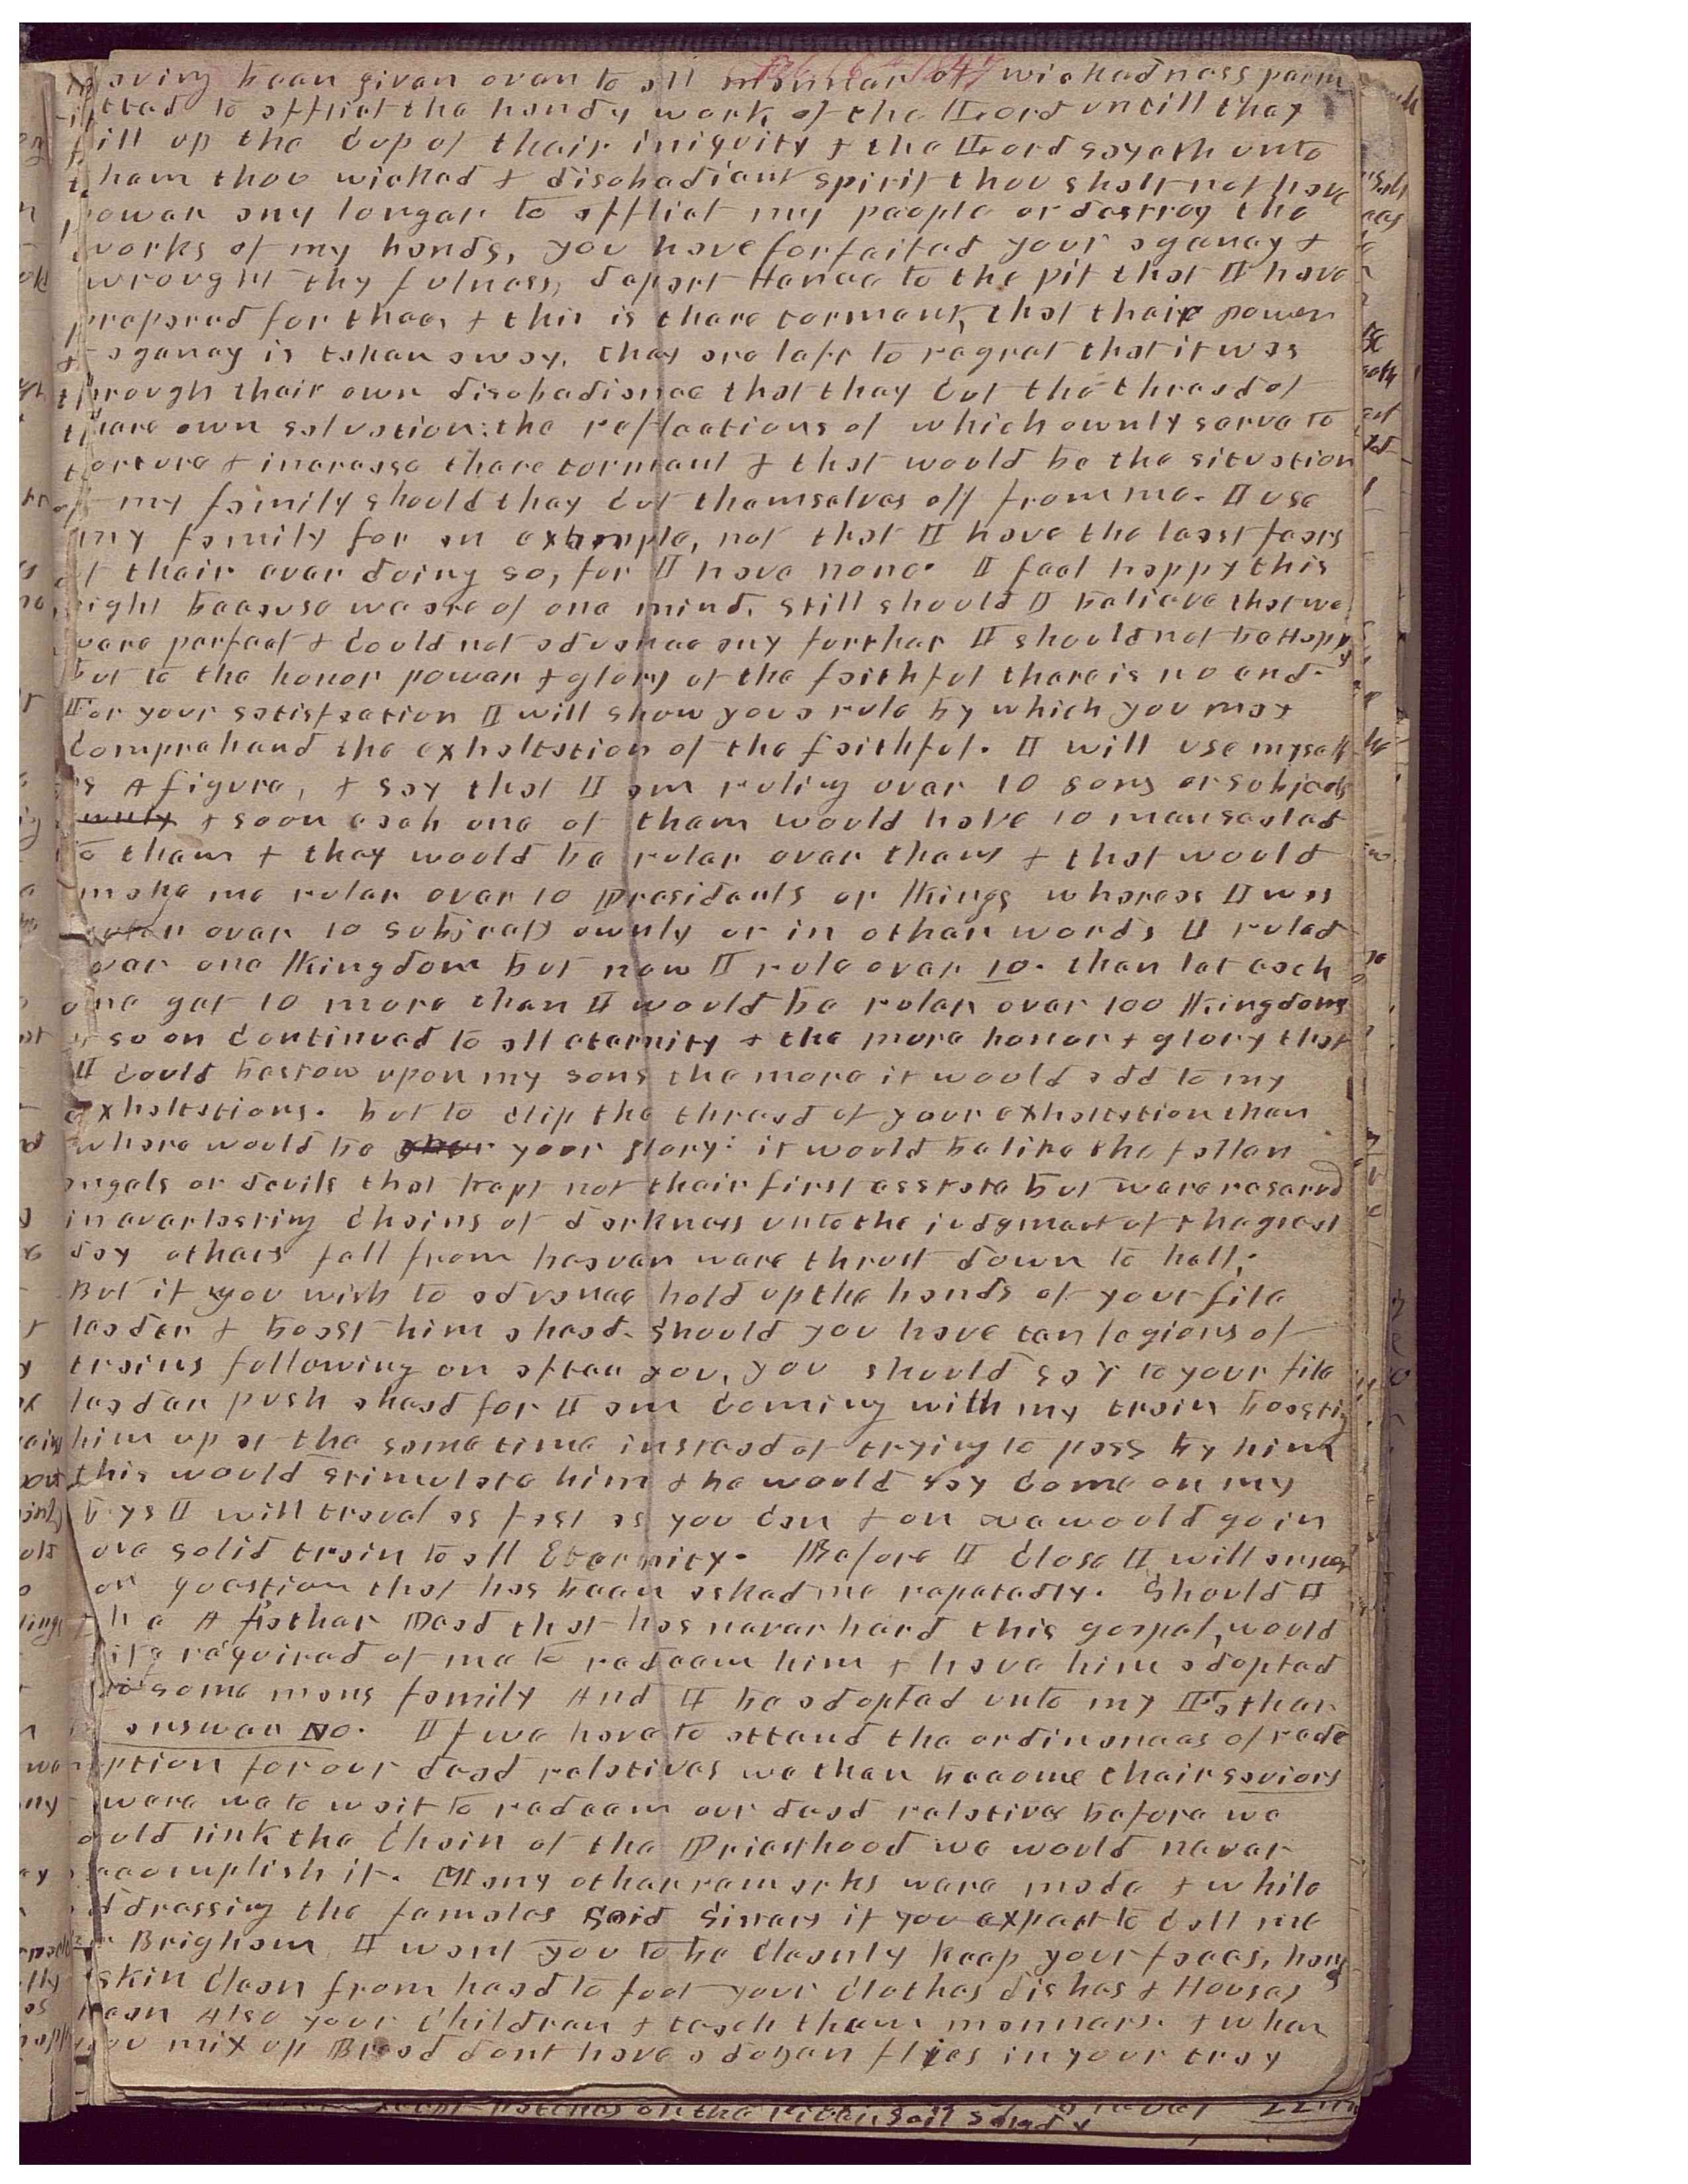 having been given over to all manner of wickedness perm
-itted to afflict the handy work of the Lord untill they
fill up the Cup of their iniquity & the Lord sayeth unto
them thou wicked & disobediant spirit thou shalt not have
power any longer to afflict my people or destroy the
works of my hands, you have forfeited your agency &
wrought thy fulness, depart Hence to the pit that I have
prepared for thee, & this is thare torment, that their power
& agency is taken away, they are left to regret that it was
through their own disobedience that they Cut the thread of
thare own salvation: the reflections of which ownly serve to
torture & increase thare torment & that would be the situation
of my family should they Cut themselves off from me. I use
my family for an example, not that I have the least fears
of their ever doing so, for I have none. I feel happy this
night because we are of one mind, still should I believe that we
ware perfect & Could not advance any further I should not be Happy
but to the honor power & glory of the faithful there is no end.
For your satisfaction I will show you a rule by which you may
Comprehend the exhaltation of the faithful. I will use myself
as A figure, & say that I am ruling over 10 sons or subjects
ownly & soon each one of them would have 10 men sealed
to them & they would be ruler over them & that would
make me ruler over 10 Presidents or Kings whereas I was
ruler over 10 subjects ownly or in other words I ruled
over one Kingdom but now I rule over 10. then let each
one get 10 more then I would be ruler over 100 Kingdoms
& so on Continued to all eternity & the more honor & glory that
I Could bestow upon my sons the more it would add to my
exhaltations. but to Clip the thread of your exhaltation then
where would be your glory: it would be like the fallen
angels or devils that kept not their first esstate but ware reserved
in everlasting Chains of darkness unto the judgment of the great
day others fell from heaven ware thrust down to hell,
But if you wish to advance hold up the hands of your file
leader & boost him ahead. should you have ten legions of
trains following on after you, you should say to your file
leader push ahead for I am Coming with my train boosting
him up at the same time instead of trying to pass by him
this would stimulate him & he would say Come on my
boys I will travel as fast as you Can & on we would go in
one solid train to all Eternity. Before I Close I will answer
on question that has been asked me repetedly. Should I
have A father Dead that has never hard this gospel, would
it be required of me to redeem him & have him adopted
into some mans family And I be adopted unto my Father
I answer No. If we have to attend the ordinances of rede
mption for our dead relatives we then become their saviors
& ware we to wait to redeem our dead relatives before we
Could link the Chain of the Priesthood we would never
accomplish it. Many other remarks ware made & while
addressing the females Said Sisters if you expect to Call me
Br Brigham I want you to be Cleanly keep your faces, hands
& skin Clean from head to foot your Clothes dishes & Houses
Clean Also your Children & teach them manners. & when
you mix up Bread dont have a dozen flies in your tray